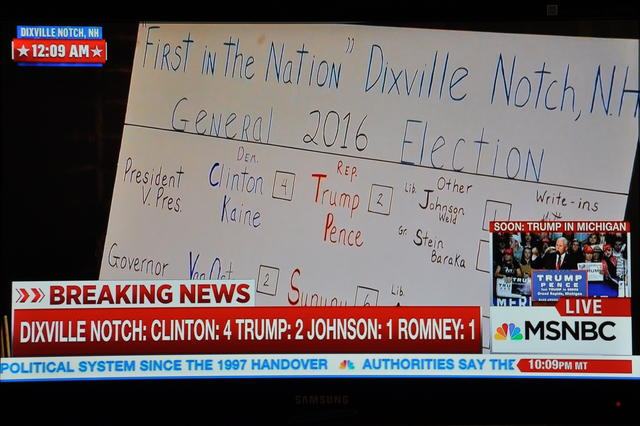 DIXVILLE NOTCH, NH
★12:09 AM★
"FIRST IN THE NATION" DIXVILLE NOTCH, N.H
GENERAL 2016 ELECTION
Dem. REP. Lib. Other Write-ins
President Clinton 4 Trump 2 Johnson 1
V. Pres. Kaine Pence Weld
Gr. Stein
Baraka
Governor 2 Sununu 6 Lib.
SOON: TRUMP IN MICHIGAN
TRUMP
PENCE
BREAKING NEWS
LIVE
DIXVILLE NOTCH: CLINTON: 4 TRUMP: 2 JOHNSON: 1 ROMNEY: 1
MSNBC
POLITICAL SYSTEM SINCE THE 1997 HANDOVER AUTHORITIES SAY THE
10:09PM MT
SAMSUNG